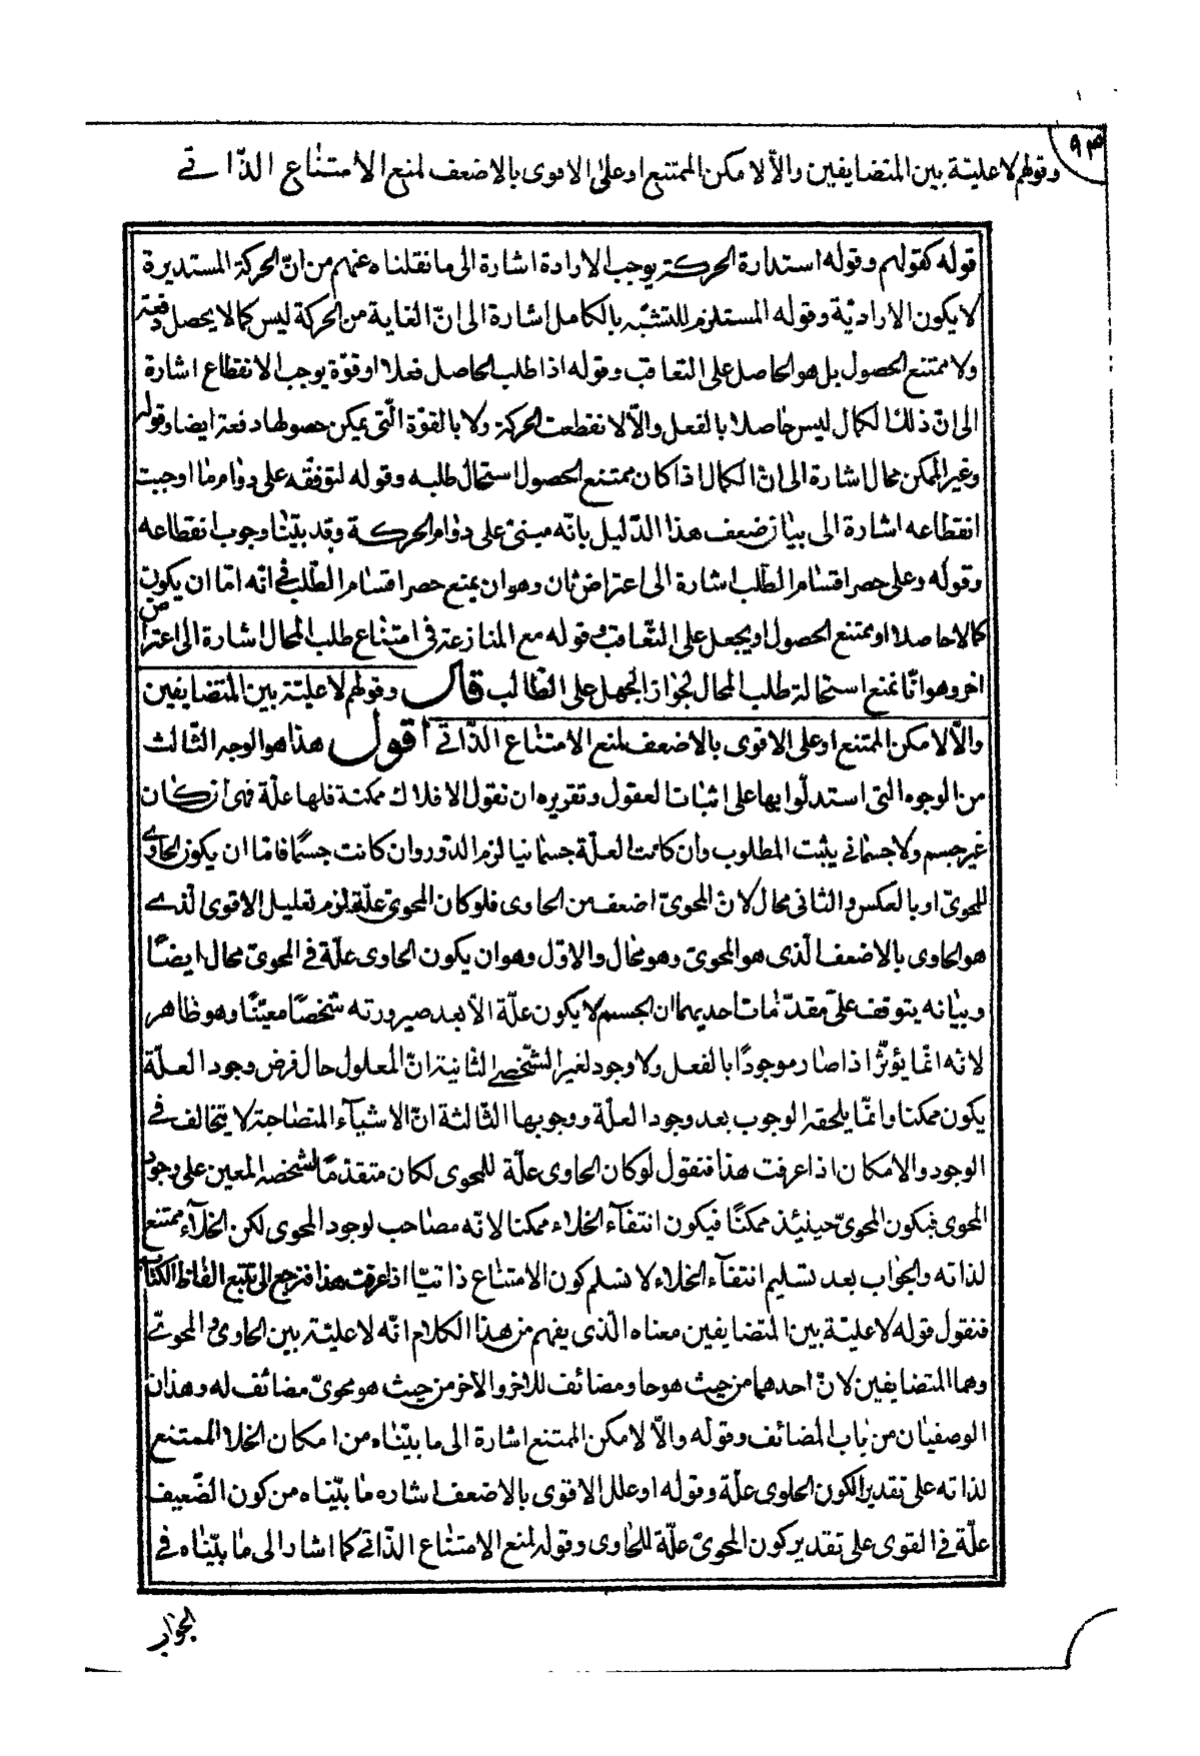 ٩٣
وقولهم لا علیّة بین المتضایفین والّا لا مکن الممتنع او علیٰ الاقوی بالاضعف لمنع الامتناع الذّاتی
قوله کقولهم وقوله استدارة الحرکة یوجب الارادة اشارة الی ما نقلناه عنهم من انّ الحرکة المستدیرة
لا یکون الا رادیّة وقوله المستلزم للتشبّه بالکامل اشارة الی انّ الغایة من الحرکة لیس کمالا یحصل دفعة
ولا ممتنع الحصول بل هو الحاصل علی التعاقب وقوله اذ اطلب الحاصل فعلا او قوّة یوجب الانقطاع اشارة
الی انّ ذلک الکمال لیس حاصلا بالفعل والّا لانقطعت الحرکة ولا بالقوّة الّتی یمکن حصولها دفعة ایضا وقوله
وغیر الممکن محال اشارة الی انّ الکمال اذا کان ممتنع الحصول استحال طلبه وقوله لتوقّفه علی دوام ما اوجبت
انقطاعه اشارة الی بیان ضعف هذا الدّلیل بانّه مبنیّ علی دوام الحرکة وقد بیّنّا وجوب انقطاعه
وقوله وعلی حصر اقسام الطّلب اشارة الی اعتراض ثان وهو ان یمنع حصر اقسام الطّلب فی انّه امّا ان یکون
کمالا حاصلا او یمتنع الحصول او یجعل علی التّعاقب وقوله مع المنازعة فی امتناع طلب المحال اشارة الی اعتراض
اخر وهو انّا نمنع استحالة طلب المحال لجواز الجهل علی الطّالب قال وقولهم لا علیّة بین المتضایفین
والّا لا مکن الممتنع او علی الاقوی بالاضعف لمنع الامتناع الذّاتی اقول هذا هو الوجه الثّالث
من الوجوه التی استدلّوا بها علی اثبات العقول وتقریره ان نقول الافلاک ممکنة فلها علّة فهی ان کان
غیر جسم ولا جسمانی یثبت المطلوب وان کانت العلّة جسمانیا لزم الدّور وان کانت جسمًا فامّا ان یکون الحاوی
للمحویّ او بالعکس والثانی محال لانّ المحویّ اضعف من الحاوی فلو کان المحویّ علّة لزم تعلیل الاقوی الّذی
هو الحاوی بالاضعف الّذی هو المحویّ وهو محال والاوّل وهو ان یکون الحاوی علّة فی المحویّ محال ایضًا
وبیانه یتوقف علی مقدّمات احدیهما ان الجسم لا یکون علّة الّا بعد صیرورته شخصًا معیّنًا وهو ظاهر
لانّه انّما یؤثّر اذا صار موجودًا بالفعل ولا وجود لغیر الشّخصی الثّانیة انّ المعلول حال فرض وجود العلّة
یکون ممکنا وانّما یلحقه الوجوب بعد وجود العلّة ووجوبها الثّالثة انّ الاشیآء المتصاحبة لا یتخالف فی
الوجود والامکان اذا عرفت هذا فنقول لو کان الحاوی علّة للمحوی لکان متقدّمًا لشخصه المعین علی وجود
المحوی فیکون المحویّ حینئذ ممکنًا فیکون انتفآء الخلاء ممکنا لانّه مصاحب لوجود المحوی لکن الخلآء ممتنع
لذاته والجواب بعد تسلیم انتفآء الخلاء لا نسلم کون الامتناع ذاتیّا اذا عرفت هذا فنرجع الی تتبع الفاظ الکتاب
فنقول قوله لا علیّة بین المتضایفین معناه الّذی یفهم من هذا الکلام انّه لا علیّة بین الحاوی والمحویّ
وهما المتضایفین لانّ احدهما من حیث هو حاو مضائف للاخر والاخر من حیث هو محویّ مضائف له وهذان
الوصفیان من باب المضائف وقوله والّا لا مکن الممتنع اشارة الی ما بیّنّاه من امکان الخلا الممتنع
لذاته علی تقدیر الکون الحاوی علّة وقوله او علل الاقوی بالاضعف اشاره ما بیّناه من کون الضّعیف
علّة فی القوی علی تقدیر کون المحویّ علّة للحاوی وقوله لمنع الامتناع الذّاتی کما اشار الی ما بیّناه فی
الجواب